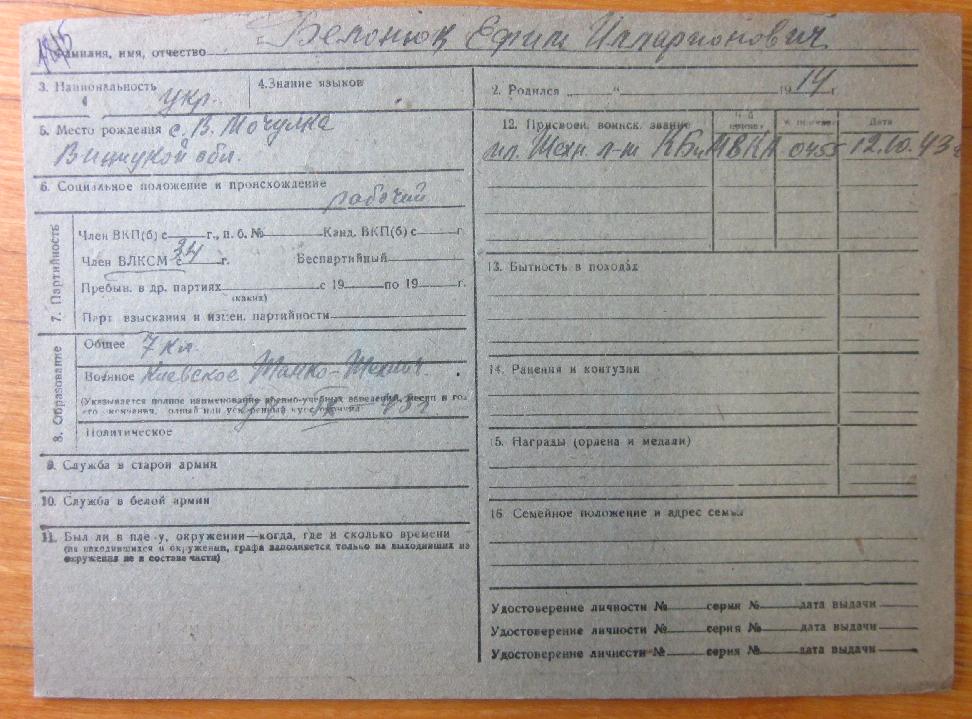 Фамилия, имя, отчество Белонюк Ефим Илларионович
3. Национальность укр.
4.Знание языков
5. Место рождения с. В. Мочулка
Виницкой обл.
6. Социальное положение и происхождение
рабочий
7. Партийность
Член ВКП(б) с г., п. б. № Канд. ВКП(б) с г.
Член ВЛКСМ с 34 г. Беспартийный
Пребыв. в др. партиях с 19 по 19 г.
(каких)
Парт взыскания и измен. партийности
8. Образование
Общее 7 кл.
Военное Киевское Танко-Технич.
(Указывается полное наименование военно-учебных заведений, месяц и год
его окончания, полный или ускоренный курс окончил) 43г
Политическое
9. Служба в старой армии
10. Служба в белой армии
11. Был ли в плену, окружении—когда, где и сколько времени
(на находившихся в окружении, графа заполняется только на выходивших из
окружения не в составе части)
2. Родился " 1914 г.
12. Присвоен. воинск. звание № приказа Дата
мл. Техн. л-т КБиМВКА 0455 12.10.43г
13. Бытность в походах
14. Ранения и контузии
15. Награды (ордена и медали)
16 Семейное положение и адрес семьи
Удостоверение личности № серия № дата выдачи
Удостоверение личности № серия № дата выдачи
Удостоверение личности № серия № дата выдачи